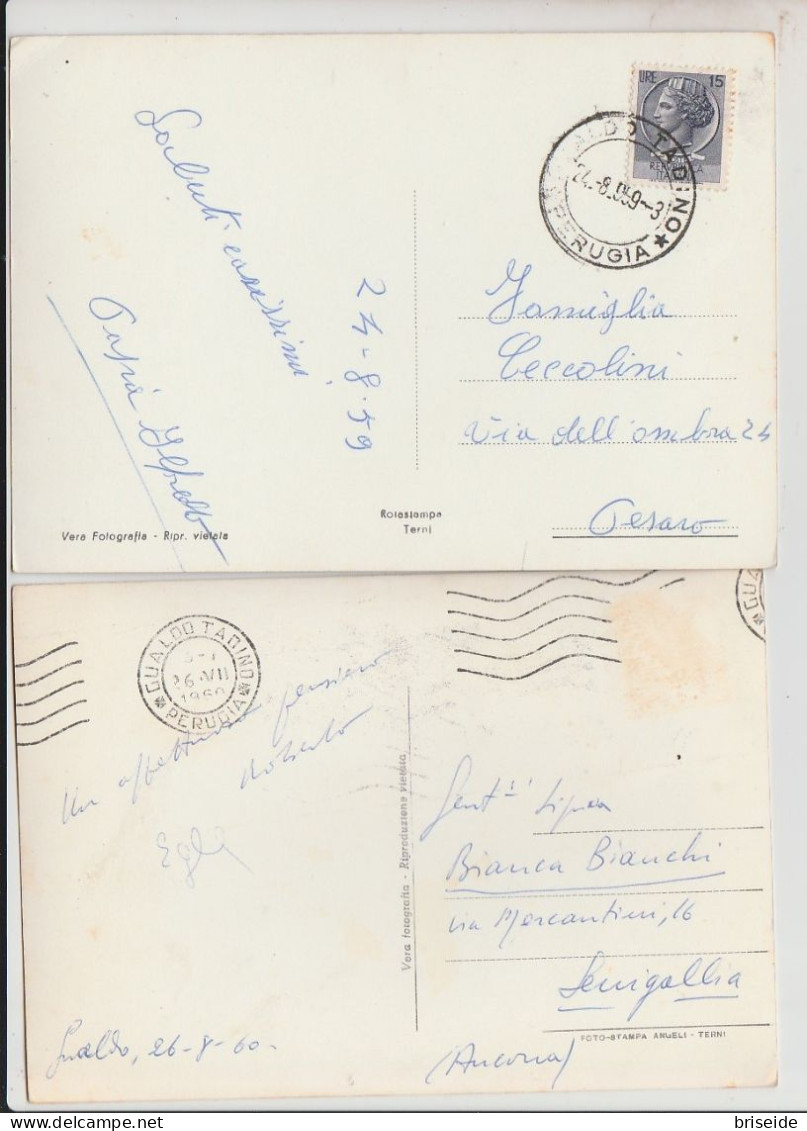 LIRE 15
REPUBBLICA
ITALIANA
GUALDO TADINO
24.-8.959-3
PERUGIA
Saluti carissimi
24-8-59
Papà
Famiglia
Ceccolini
Via dell'ombra 24
Pesaro
Rotostampa
Terni
Vera Fotografia - Ripr. vietata
GUALDO TADINO
26.VII
1960
PERUGIA
GUA
Un affettuoso pensiero
Roberto
Gualdo, 26-8-60.
Vera fotografia - Riproduzione vietata
Gent.ma Sig.na
Bianca Bianchi
via Mercantini, 16
Senigallia
(Ancona)
FOTO-STAMPA ANGELI - TERNI
briseide